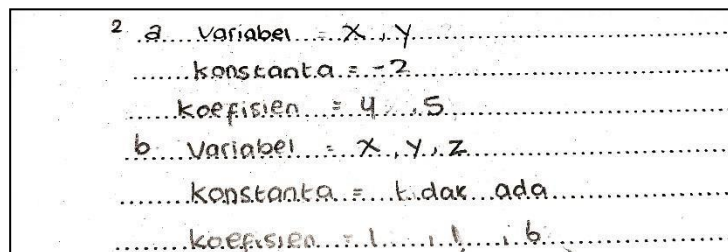 2 a Variabel = X, Y
konstanta = -2
koefisien = 4, 5
b Variabel = X, Y, Z
konstanta = tidak ada
koefisien = 1, 1, 6